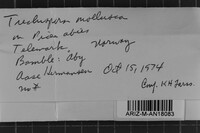 Trechispora mollusca
on Picea abies
Telemark, Norway
Bamble: Åby
Aase Hermansen Oct 15, 1974
no# Conf. KH Larss.
ARIZ-M-AN18083